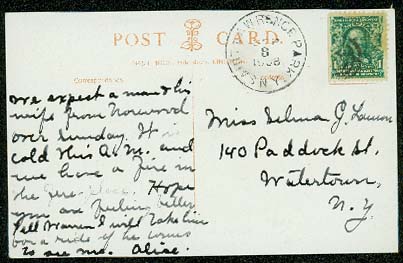 POST CARD.
LAWRENCE PARK
8
1908
N.Y.
Correspondence.
1
We expect a man & his
wife from Norwood
over Sunday. It is
cold this A.M. and
we have a fire in
the fire-place. Hope
you are feeling better
Tell Warren I will take him
for a ride if he comes
to see me. Alice.
Miss Selma J. Lawson
140 Paddock St,
Watertown,
N.Y.